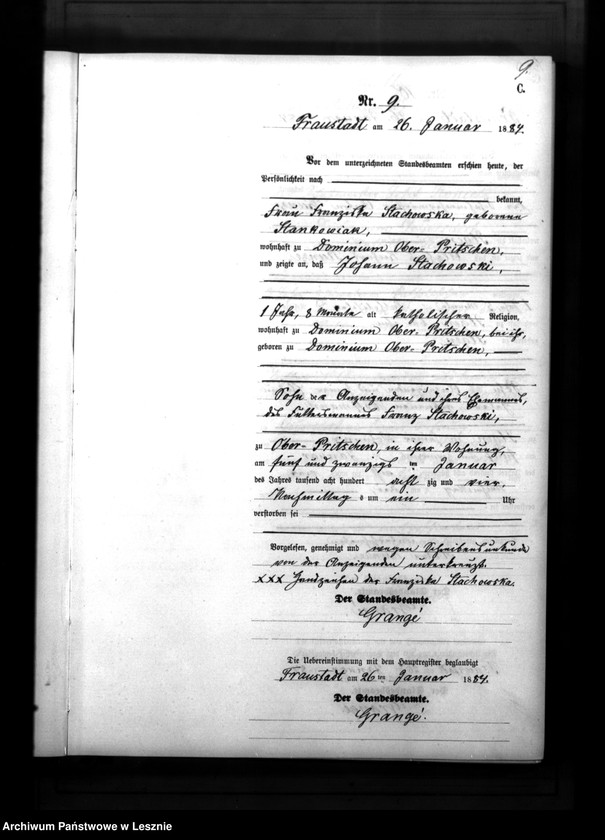 9.
C.
Nr. 9.
Fraustadt am 26. Januar 1884.
Vor dem unterzeichneten Standesbeamten erschien heute, der
Persönlichkeit nach
bekannt,
Frau Franziska Stachowska, geborene
Stankowiak,
wohnhaft zu Dominium Ober-Pritschen,
und zeigte an, daß Johann Stachowski,
1 Jahr, 8 Monate alt katholischer Religion,
wohnhaft zu Dominium Ober-Pritschen, bei ihr,
geboren zu Dominium Ober-Pritschen,
Sohn der Anzeigenden und ihres Ehemannes,
des Futtermannes Franz Stachowski,
zu Ober-Pritschen, in ihrer Wohnung,
am fünf und zwanzigsten Januar
des Jahres tausend acht hundert acht zig und vier,
Nachmittags um ein Uhr
verstorben sei
Vorgelesen, genehmigt und wegen Schreibensunkunde
von der Anzeigenden unterkreuzt.
XXX Handzeichen der Franziska Stachowska.
Der Standesbeamte.
Grangé
Die Uebereinstimmung mit dem Hauptregister beglaubigt
Fraustadt am 26ten Januar 1884.
Der Standesbeamte.
Grangé.
Archiwum Państwowe w Lesznie